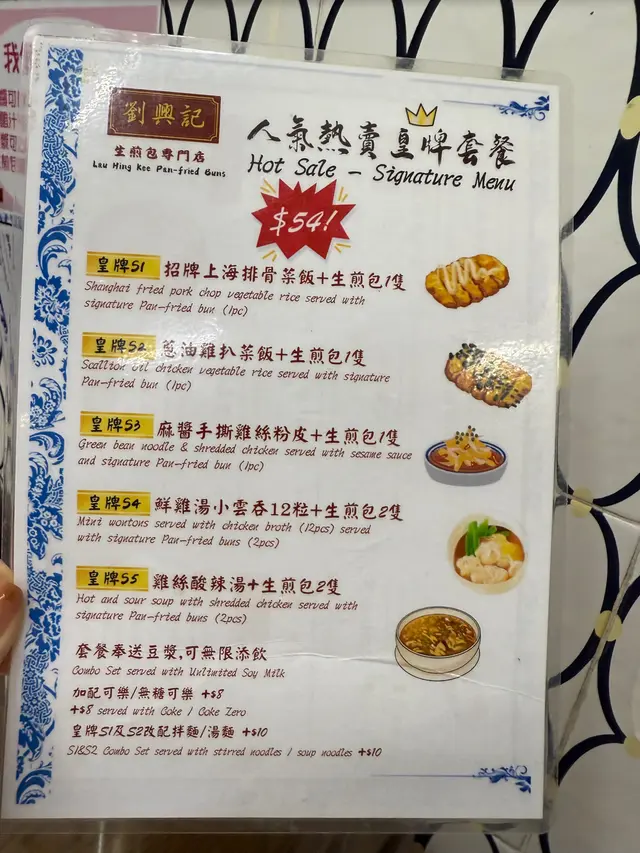 劉興記
生煎包專門店
Lau Hing Kee Pan-fried Buns
人氣熱賣皇牌套餐
Hot Sale - Signature Menu
$54!
皇牌S1 招牌上海排骨菜飯+生煎包1隻
Shanghai fried pork chop vegetable rice served with
signature Pan-fried bun (1pc)
皇牌S2 蔥油雞扒菜飯+生煎包1隻
Scallion Oil chicken vegetable rice served with signature
Pan-fried bun (1pc)
皇牌S3 麻醬手撕雞絲粉皮+生煎包1隻
Green bean noodle & shredded chicken served with sesame sauce
and signature Pan-fried bun (1pc)
皇牌S4 鮮雞湯小雲吞12粒+生煎包2隻
Mini wontons served with chicken broth (12pcs) served
with signature Pan-fried buns (2pcs)
皇牌S5 雞絲酸辣湯+生煎包2隻
Hot and sour soup with shredded chicken served with
signature Pan-fried buns (2pcs)
套餐奉送豆漿,可無限添飲
Combo Set served with Unlimited Soy Milk
加配可樂/無糖可樂 +$8
+$8 served with Coke / Coke Zero
皇牌S1及S2改配拌麵/湯麵 +$10
S1&S2 Combo Set served with stirred noodles / soup noodles +$10